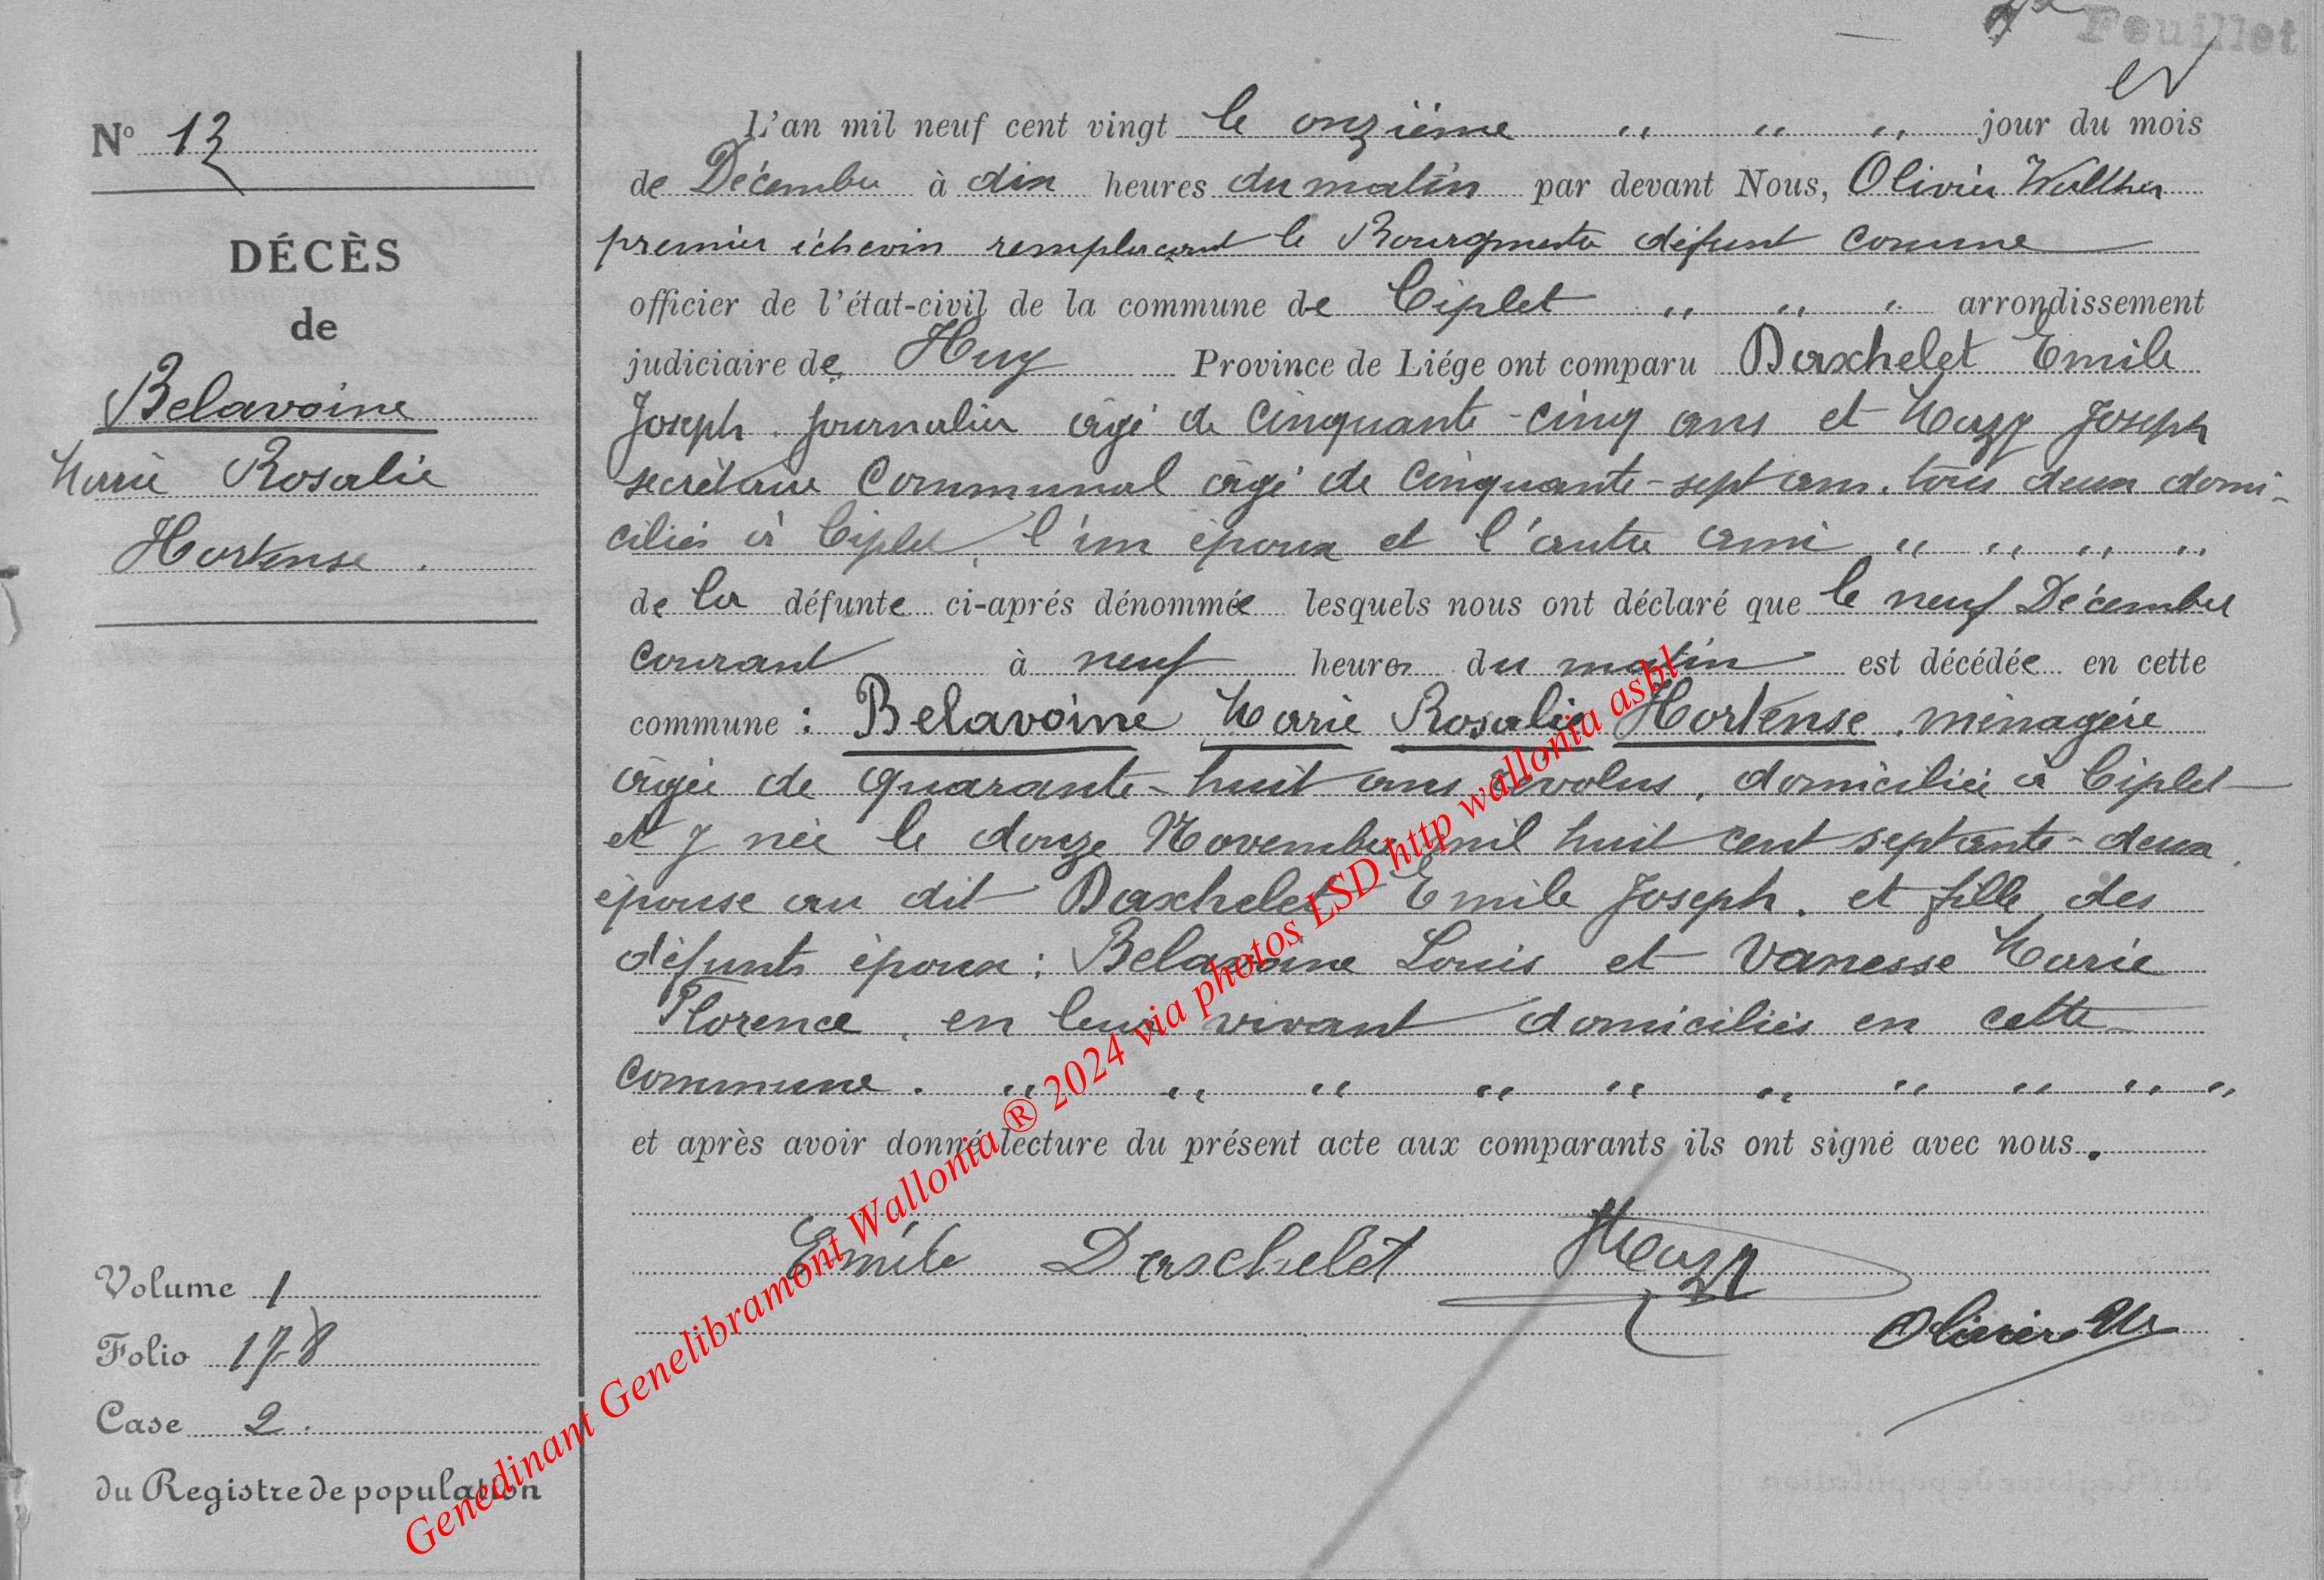 Feuillet
N° 13
DÉCÈS
de
Belavoine
Marie Rosalie
Hortense.
Volume 1
Folio 178
Case 2.
du Registre de population
L'an mil neuf cent vingt le onzième " " " jour du mois
de Décembre à dix heures du matin par devant Nous, Olivier Walther
premier échevin remplaçant le Bourgmestre défunt comme
officier de l'état-civil de la commune de Ciplet " " " arrondissement
judiciaire de Huy Province de Liége ont comparu Daxhelet Emile
Joseph. journalier âgé de cinquante-cinq ans et Joseph
secrétaire Communal âgé de cinquante-sept ans. tous deux domi-
ciliés à Ciplet, l'un époux et l'autre ami " " " "
de la défunte ci-aprés dénommée lesquels nous ont déclaré que le neuf Décembre
courant à neuf heures du matin est décédée en cette
commune : Belavoine Marie Rosalie Hortense. ménagère
âgée de quarante-huit ans révolus, domiciliée à Ciplet
et y née le douze Novembre mil huit cent septante-deux,
épouse au dit Daxhelet Emile Joseph. et fille des
défunts époux : Belavoine Louis et Vanesse Marie
Florence, en leur vivant domiciliés en cette
commune. " " " " " " " " " "
et après avoir donné lecture du présent acte aux comparants ils ont signé avec nous.
Emile Daschelet
Olivier W
Genedinant Genelibramont Wallonia ® 2024 via photos LSD http wallonia asbl